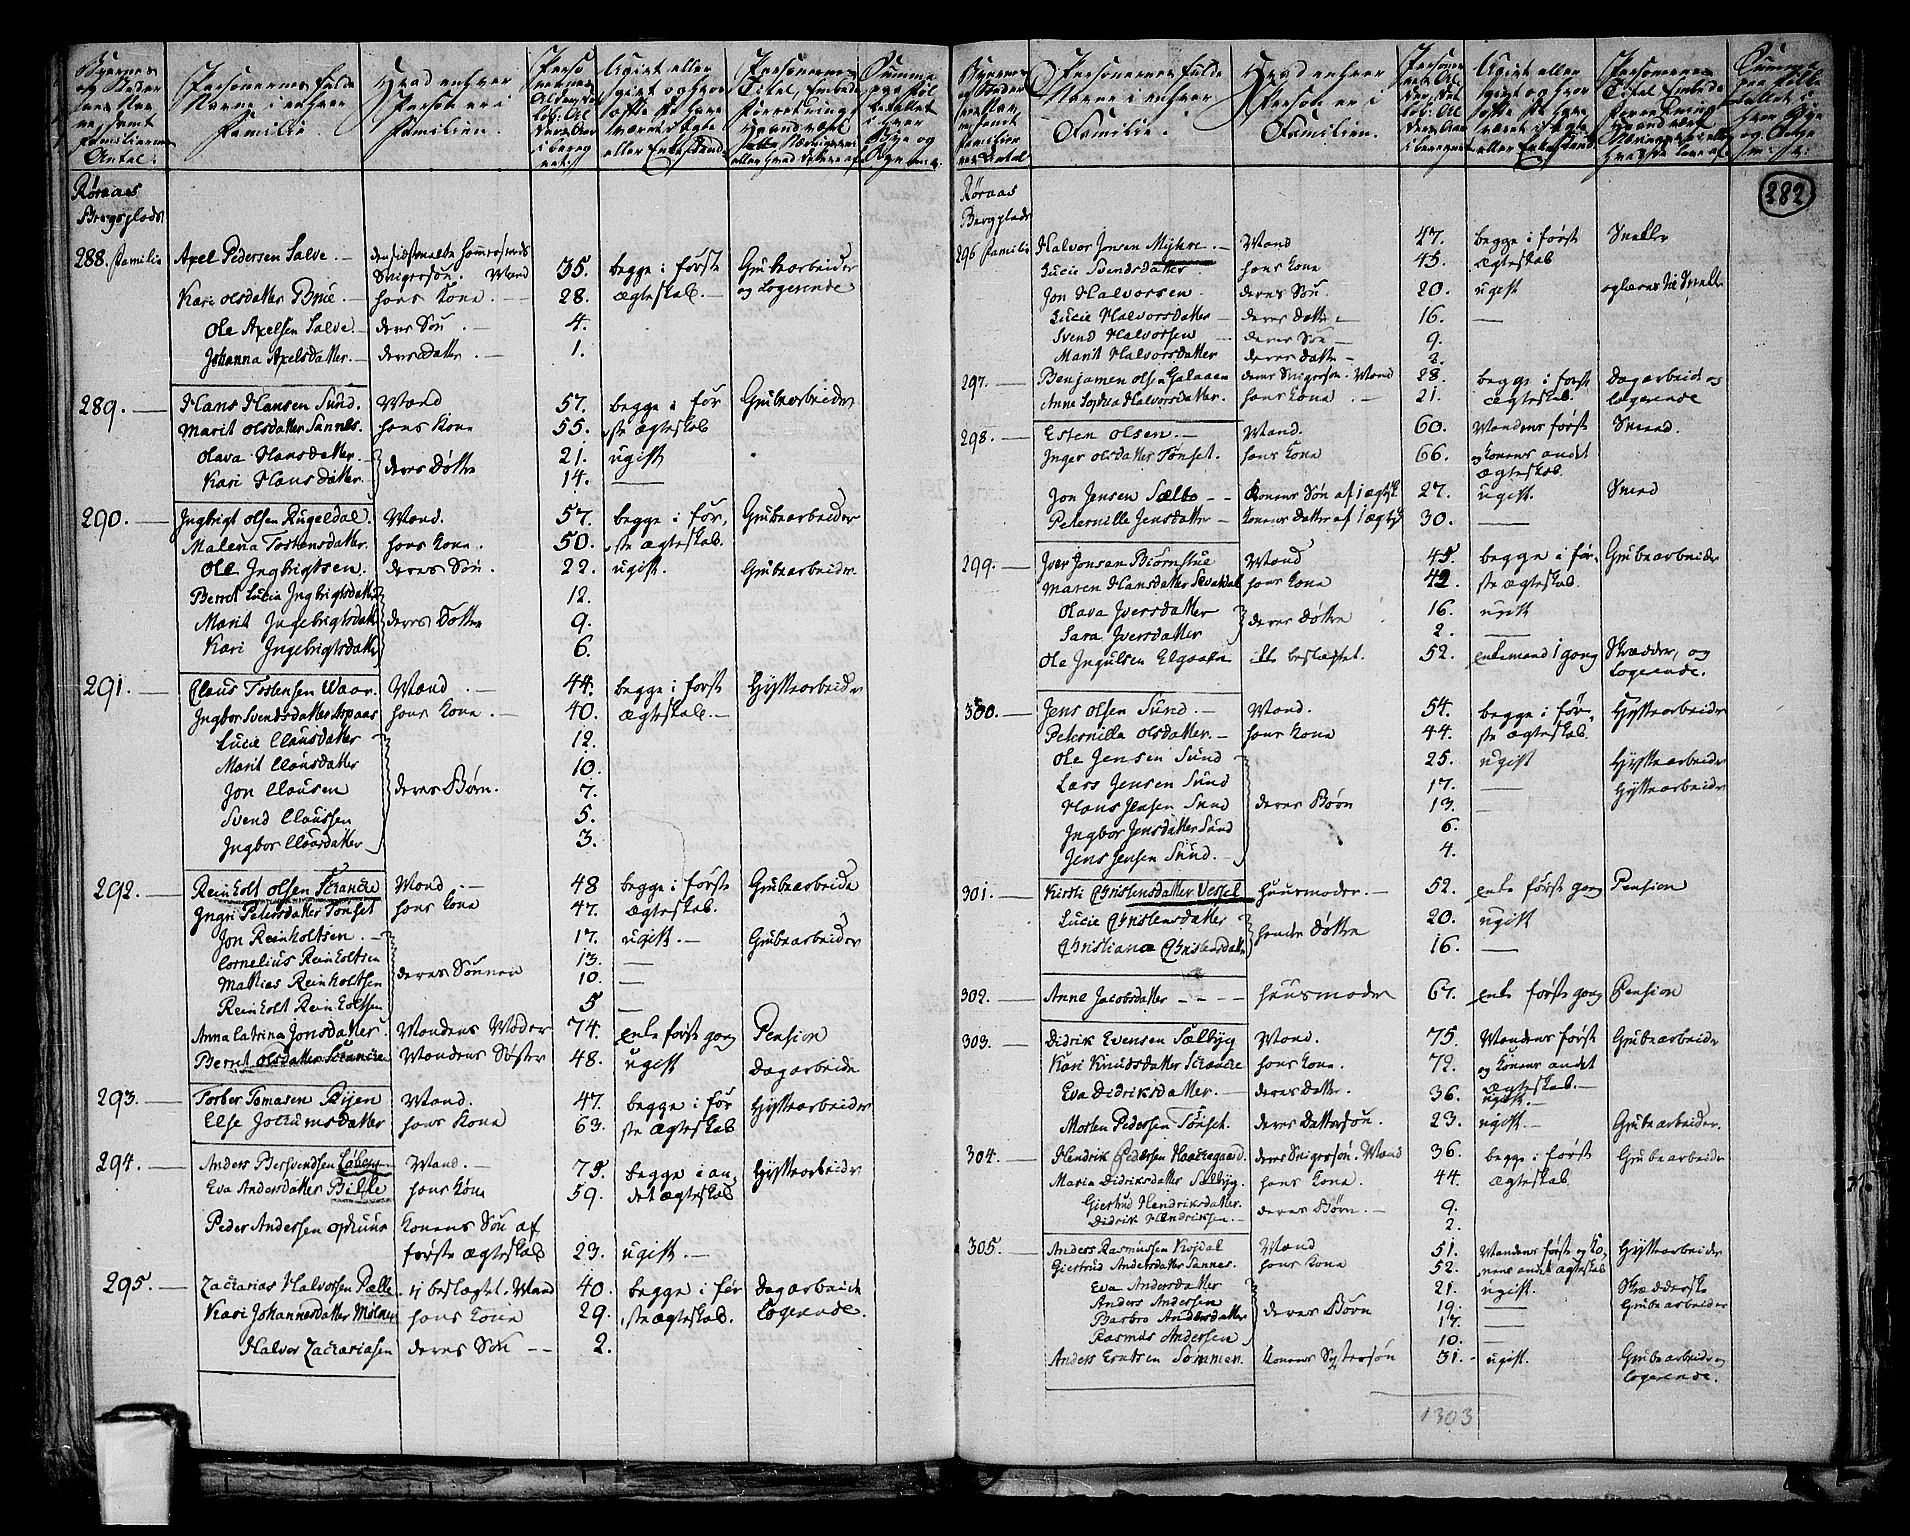 Personernes fulde Navne i enhver Familie.
Hvad enhver Person er i Familien.
Røraas Bergsplads
288. Familie Axel Pedersen Salve — Svigersøn. Mand 35. begge i første Grubearbeider
Kari Olsdatter Brue — hans Kone. — 28. ægteskab. — og Logerende
Ole Axelsen Salve — deres Søn. — 4.
Johanna Axelsdatter. — deres datter. — 1.
289. — Hans Hansen Sund. Mand 57. begge i før Grubearbeider
Marit Olsdatter Sannes. hans Kone 55. ste ægteskab
Olava Hansdatter. — deres Døttre 21. ugift
Kari Hansdatter. 14. —
290. — Ingbrigt Olsen Rugeldal. Mand. 57. begge i før, Grubearbeider
Malena Tostensdatter. hans Kone. 50. ste ægteskab.
Ole Ingbrigtsen. deres Søn. 22. ugift. Grubearbeider
Berret Lucia Ingbrigtsdatter 12.
Marit Ingebrigtsdatter deres Dottre 9.
Kari Ingebrigtsdatter 6.
291. — Claus Tostensen Waar. Mand. — 44. begge i første Hyttearbeider
Ingbor Svendsdatter Aspaas hans Kone. — 40. ægteskab. —
Lucie Clausdatter 12.
Marit Clausdatter 10.
Jon Clausen deres Børn. 7.
Svend Claussen 5.
Ingbor Clausdatter 3.
292. — Reinholt Olsen Schancke Mand — 48 begge i første Grubearbeide
Ingri Petersdatter Tønset hans Kone 47. ægteskab.
Jon Reinholtsen. — 17. ugift. — Grubearbeider
Cornelius Reinholtsen 13. —
Mattias Reinholtsen deres Sønner 10. —
Reinholt Reinholtsen 5 —
Anna Catrina Jonsdatter. Mandens Moder 74. enke første gang Pension
Berret Olsdatter Schancke Mandens Søster 48. ugift dagarbeide
293. — Torber Tomasen Mand. 47. begge i før Hyttearbeider
Else Jochumsdatter hans Kone 63. ste Ægteskab
294. — Anders Bersvendsen Mand. — 75. begge i an, Hyttearbeider
Eva Andersdatter hans Kone 59. det ægteskab
Peder Andersen Ophuus Konens Søn af
første ægteskab 23. ugift. —
295. — Zacharias Halvorsen Pælle ej beslægtet. Mand 40. begge i før Dagarbeide
Kari Johannesdatter hans Kone 29. ste ægteskab. Logerende.
Halvor Zachariasen deres Søn — 2.
282
Personernes fulde Navne i enhver Familie.
Hvad enhver Person er i Familien.
Røraas Bergplads
296 Familie Halvor Jonsen Myhre. — Mand 47. begge i først Sneller
Lucie Svendsdatter hans Kone 45. ægteskab
Jon Halvorsen. deres Søn. 20. ugift oplæres til Sneller
Lucie Halvorsdatter — deres datter — 16. —
Svend Halvorsen — deres Søn — 9.
Marit Halvorsdatter deres datter — 2.
297. — Benjamen Olsen Galaaen deres Svigersøn. Mand 28. begge i først Dagarbeide og
Anne Sophia Halvorsdatter. hans Kone. — 21. ægteskab. logerende
298. — Esten Olsen. — Mand. 60. Mandens først Smed.
Inger Olsdatter Tønset. hans Kone 66. og Konens andet
ægteskab
Jon Jensen Sælbo — Konens Søn af 1 ægtsk. 27. ugift. Smed
Peternille Jensdatter — Konens Datter af 1 ægtsk 30. —
299. — Iver Jonsen Biørnstue Mand 45. begge i før, Grubearbeider
Maren Hansdatter hans Kone 42. ste ægteskab.
Olava Iversdatter deres Døttre 16. ugift
Sara Iversdatter 2. —
Ole Ingulsen Elgaaen ikke beslægtet. 52. enkemand 1 gang Skrædder, og
Logerende.
300. — Jens Olsen Sund. — Mand. 54. begge i før, Hyttearbeider
Peternilla Olsdatter. — hans Kone 44. ste ægteskab.
Ole Jensen Sund 25. ugift Hyttearbeider
Lars Jensen Sund 17. — Hyttearbeider
Hans Jensen Sund deres Børn 13. —
Ingbor Jensdatter Sund 6.
Jens Jensen Sund. — 4.
301. — Kirsti Christensdatter Vessel Huusmoder. — 52. enke første gang Pension
Lucie Christensdatter hendes Døttre 20. ugift
Christiana Christensdatter 16. —
302. — Anne Jacobsdatter — Huusmoder 67. enke første gang Pension
303. — Didrik Evensen Sælbyg Mand. 75. Mandens først Grubearbeider
Kari Knudsdatter Schancke hans Kone. 72. og Konens andet
ægteskab. —
Eva Didriksdatter. — deres Datter. 36. ugift. —
Morten Pedersen Tønset. deres Dattersøn. 23. ugift. — Grubearbeider.
304. — Hendrik Pedersen deres Svigersøn. Mand 36. begge i først Grubearbeider
Maria Didriksdatter Sælbyg. hans Kone. 44. ægteskab.
Giertrud Hendriksdatter. deres Børn. — 9.
Didrik Hendriksen. — 2.
305. — Anders Rasmussen Mand 51. Mandens første og Ko, Hyttearbeider
Giertrud Andersdatter Sannes. hans Kone 52. nens andet ægteskab
Eva Andersdatter 21. ugift. Skrædderske
Anders Andersen 19. — Grubearbeider
Barbro Andersdatter deres Børn 17. —
Rasmus Andersen 10. —
Anders Sømmen. Konens Systersøn 31. — ugift. Grubearbeide og
logerende.
1303